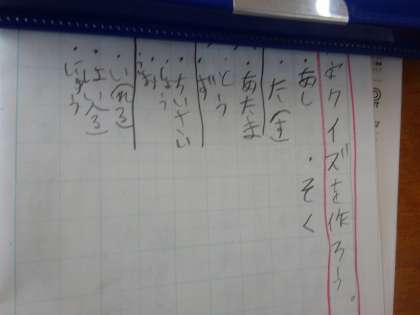 クイズを作ろう。
・あし ・そく
・た(す)
・あたま
・とう
・ず
・ちいさい
・しょう
・お
・い(れる)
・にゅう